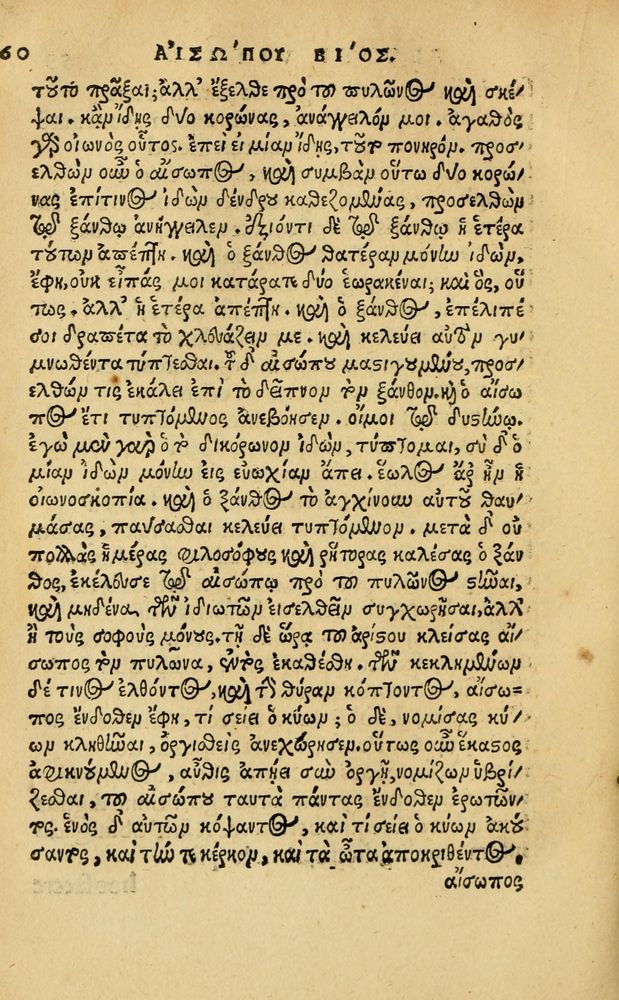 60 ΑἸΣΏΠΟΥ ΒΊΟΣ.
τοῦτο πρᾶξαι; ἀλλ' ἔξελθε πρὸ τοῦ πυλῶνος καὶ σκέ-
ψαι. κἂν ἴδης δύο κορώνας, ἀνάγγειλόν μοι. ἀγαθὸς
γὰρ οἰωνὸς οὗτος. ἐπεὶ εἰ μίαν ἴδης, τοῦτο πονηρόν. προσ-
ελθὼν οὖν ὁ αἴσωπος, καὶ συμβὰν οὕτω δύο κορώ-
νας ἐπί τινος ἰδὼν δένδρου καθεζομένας, προσελθὼν
τῷ ξάνθῳ ἀνήγγειλεν. ἐξιόντι δὲ τῷ ξάνθῳ ἡ ἑτέρα
τούτων ἀπέπτη. καὶ ὁ ξάνθος θατέραν μόνην ἰδὼν,
ἔφη, οὐκ εἶπάς μοι κατάρατε δύο ἑωρακέναι; καὶ ὃς, οὕ-
τως. ἀλλ' ἡ ἑτέρα ἀπέπτη. καὶ ὁ ξάνθος, ἐπέλιπέ
σοι δραπέτα τὸ χλευάζειν με. καὶ κελεύει αὐτὸν γυ-
μνωθέντα τύπτεσθαι. τοῦ δ' αἰσώπου μαστιγουμένου, προσ-
ελθών τις ἐκάλει ἐπὶ τὸ δεῖπνον τὸν ξάνθον. καὶ ὁ αἴσω
πος ἔτι τυπτόμενος ἀνεβόησεν. οἴμοι τῷ δυστήνῳ.
ἐγὼ μὲν γὰρ ὁ τὸ δικόρωνον ἰδὼν, τύπτομαι, σὺ δ' ὁ
μίαν ἰδὼν μόνην εἰς εὐωχίαν ἄπει. ἕωλος ἄρ' ἦν ἡ
οἰωνοσκοπία. καὶ ὁ ξάνθος τὸ ἀγχίνουν αὐτοῦ θαυ-
μάσας, παύσασθαι κελεύει τυπτόμενον. μετὰ δ' οὐ
πολλὰς ἡμέρας φιλοσόφους καὶ ῥήτορας καλέσας ὁ ξάν
θος, ἐκέλευσε τῷ αἰσώπῳ πρὸ τοῦ πυλῶνος στῆναι,
καὶ μηδένα τῶν ἰδιωτῶν εἰσελθεῖν συγχωρῆσαι, ἀλλ'
ἢ τοὺς σοφοὺς μόνους. τῇ δὲ ὥρᾳ τοῦ ἀρίστου κλείσας αἴ
σωπος τὸν πυλῶνα, ἐντὸς ἐκαθέσθη. τῶν κεκλημένων
δέ τινος ἐλθόντος, καὶ τὴν θύραν κόπτοντος, αἴσω=
πος ἔνδοθεν ἔφη, τί σείει ὁ κύων; ὁ δὲ, νομίσας κύ-
ων κληθῆναι, ὀργισθεὶς ἀνεχώρησεν. οὕτως οὖν ἕκαστος
ἀφικνούμενος, αὖθις ἀπῄει σὺν ὀργῇ, νομίζων ὑβρί-
ζεσθαι, τοῦ αἰσώπου ταυτὰ πάντας ἔνδοθεν ἐρωτῶν-
τος. ἑνὸς δ' αὐτῶν κόψαντος, καὶ τί σείει ὁ κύων ἀκού
σαντος, καὶ τὴν τε κέρκον, καὶ τὰ ὦτα ἀποκριθέντος,
αἴσωπος